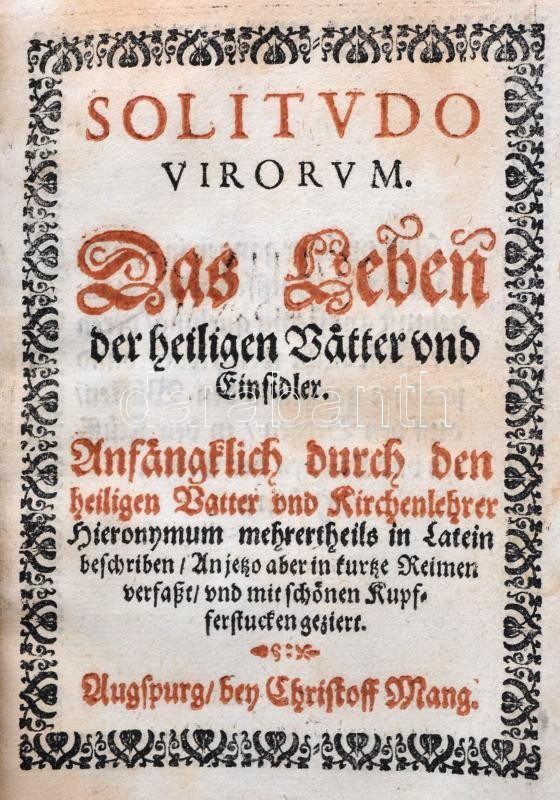 SOLITVDO
VIRORVM.
Das Leben
der heiligen Vätter vnd
Einsidler.
Anfängklich durch den
heiligen Vatter vnd Kirchenlehrer
Hieronymum mehrertheils in Latein
beschriben / Anjetzo aber in kurtze Reimen
verfaßt / vnd mit schönen Kupf-
ferstucken geziert.
Augspurg / bey Christoff Mang.
darabanth